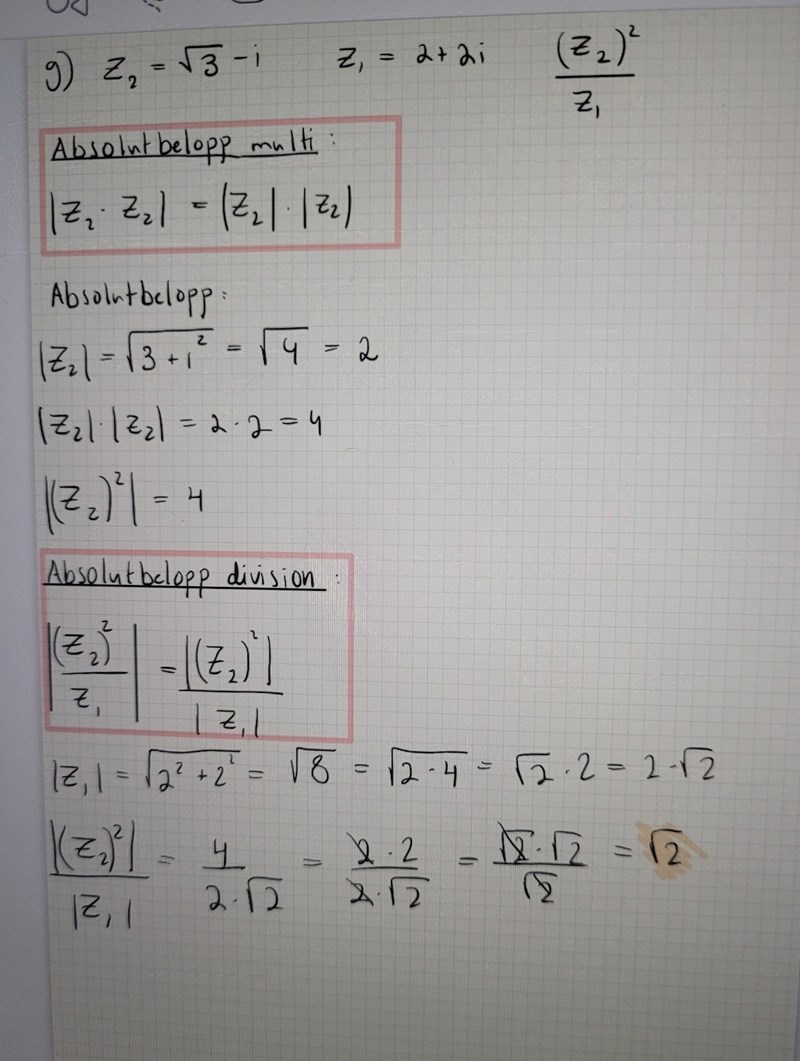 g) Z₂ = √3 - i Z₁ = 2 + 2i (Z₂)² / Z₁
Absolutbelopp multi :
|Z₂ · Z₂| = |Z₂| · |Z₂|
Absolutbelopp :
|Z₂| = √(3 + 1²) = √4 = 2
|Z₂| · |Z₂| = 2 · 2 = 4
|(Z₂)²| = 4
Absolutbelopp division :
|(Z₂)² / Z₁| = |(Z₂)²| / |Z₁|
|Z₁| = √(2² + 2²) = √8 = √(2 · 4) = √2 · 2 = 2 · √2
|(Z₂)²| / |Z₁| = 4 / (2 · √2) = (2 · 2) / (2 · √2) = (√2 · √2) / √2 = √2